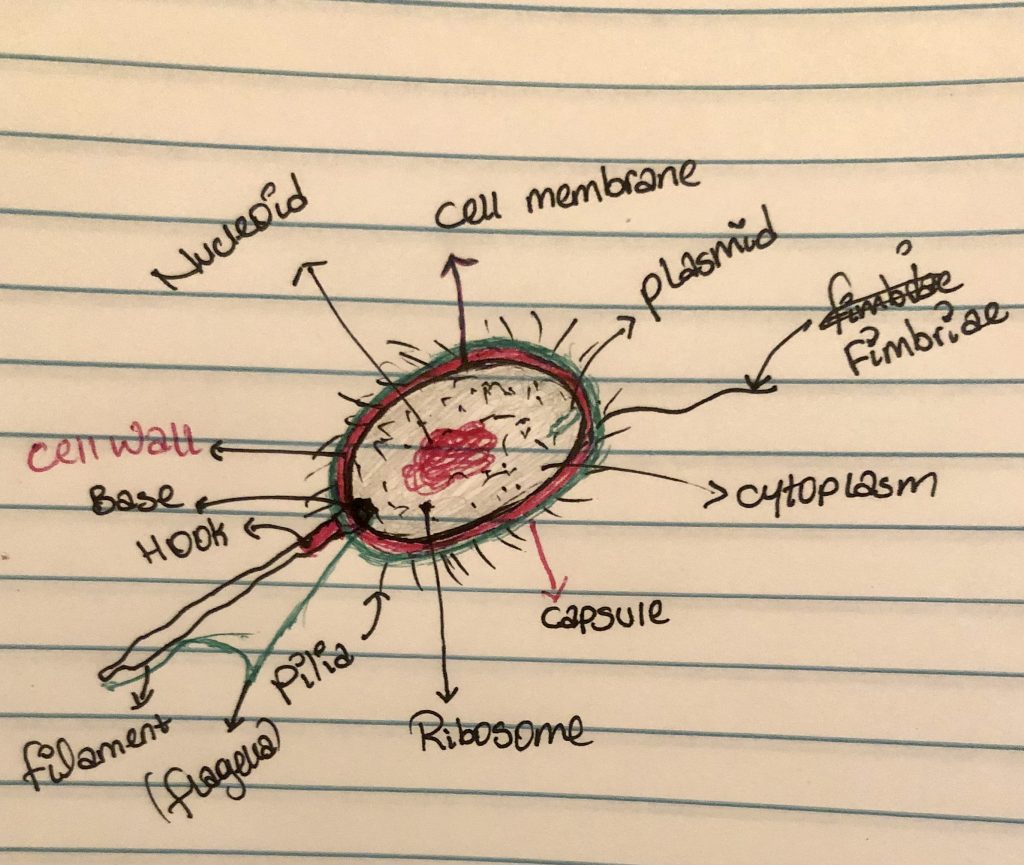 Nucleoid
cell membrane
plasmid
fimbriae
Cell wall
Base
HOOK
cytoplasm
capsule
Pilia
Ribosome
filament
(flagella)